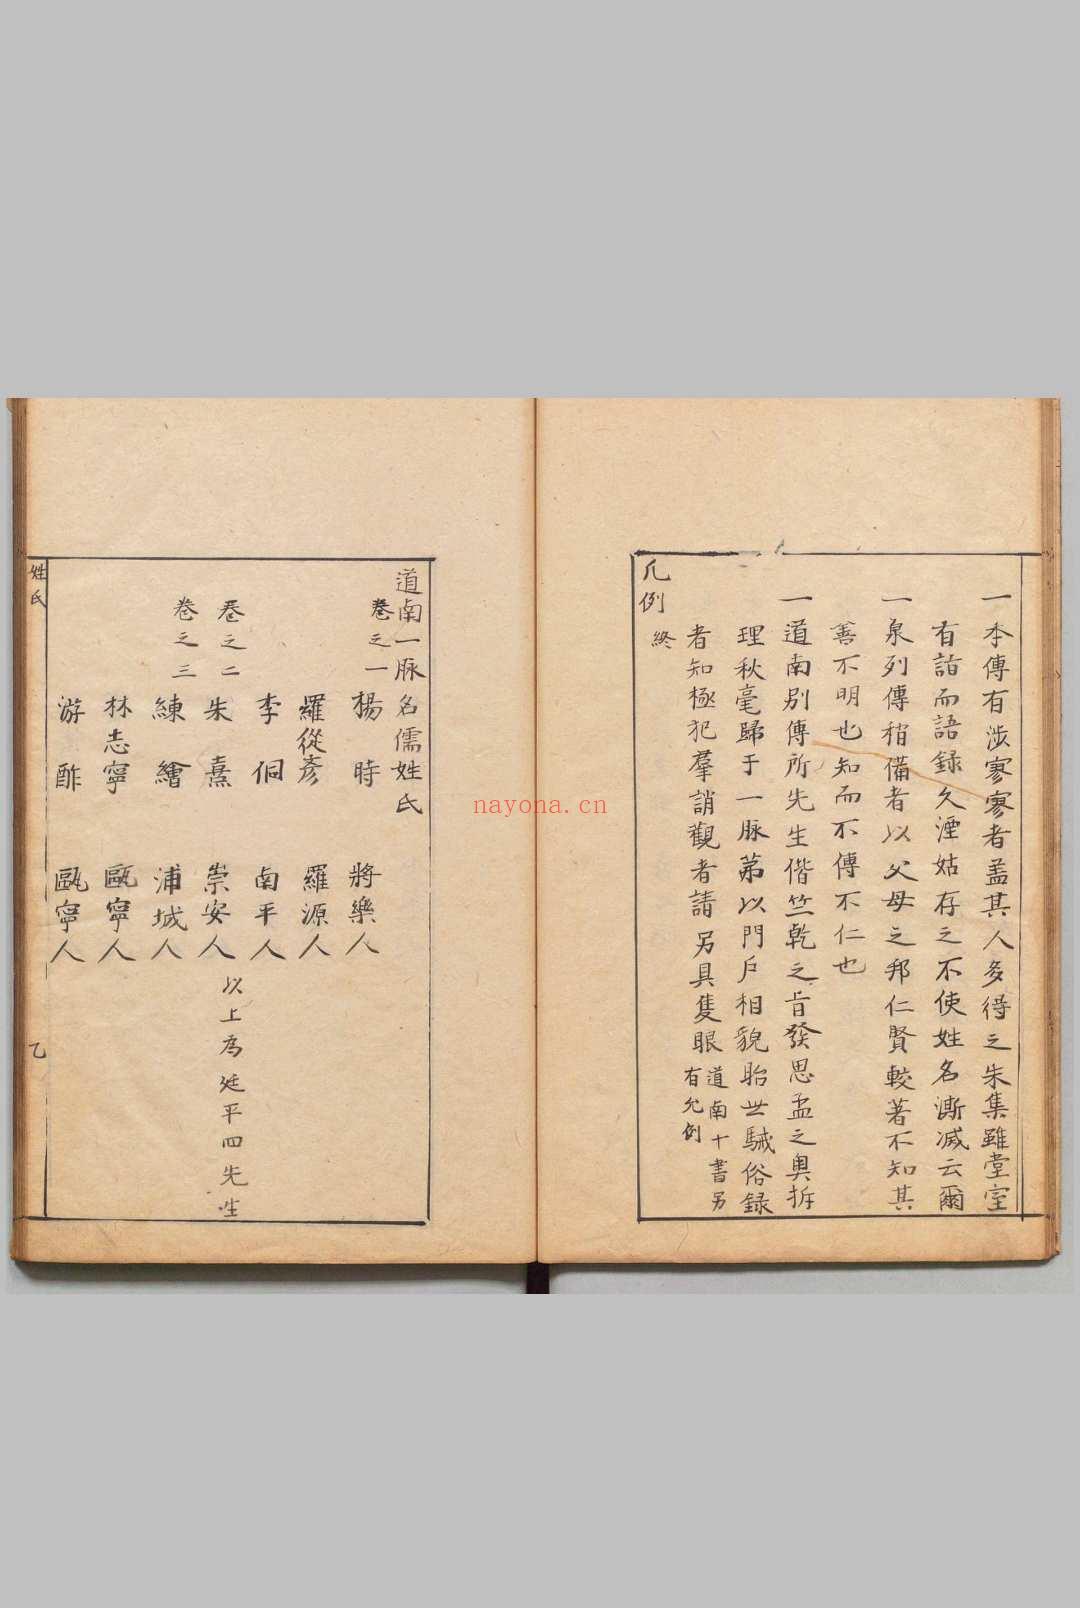 一本傳有涉寥寥者盖其人多得之朱集雖堂室
有詣而語録久湮姑存之不使姓名澌滅云爾
一泉列傳稍備者以父母之邦仁賢較著不知其
善不明也知而不傳不仁也
一道南别傳所先生偕竺乾之㫖發思孟之奥拆
理秋毫歸于一脉第以門戶相貌貽世駴俗録
者知極犯羣誚觀者請另具隻眼道南十書另
有允例
凡例終
道南一脉名儒姓氏
卷之一
楊時 將樂人
羅從彥 羅源人
李侗 南平人
卷之二
朱熹 崇安人 以上為延平四先生
卷之三
練繪 浦城人
林志寧 甌寧人
游酢 甌寧人
姓氏 乙
nayona.cn